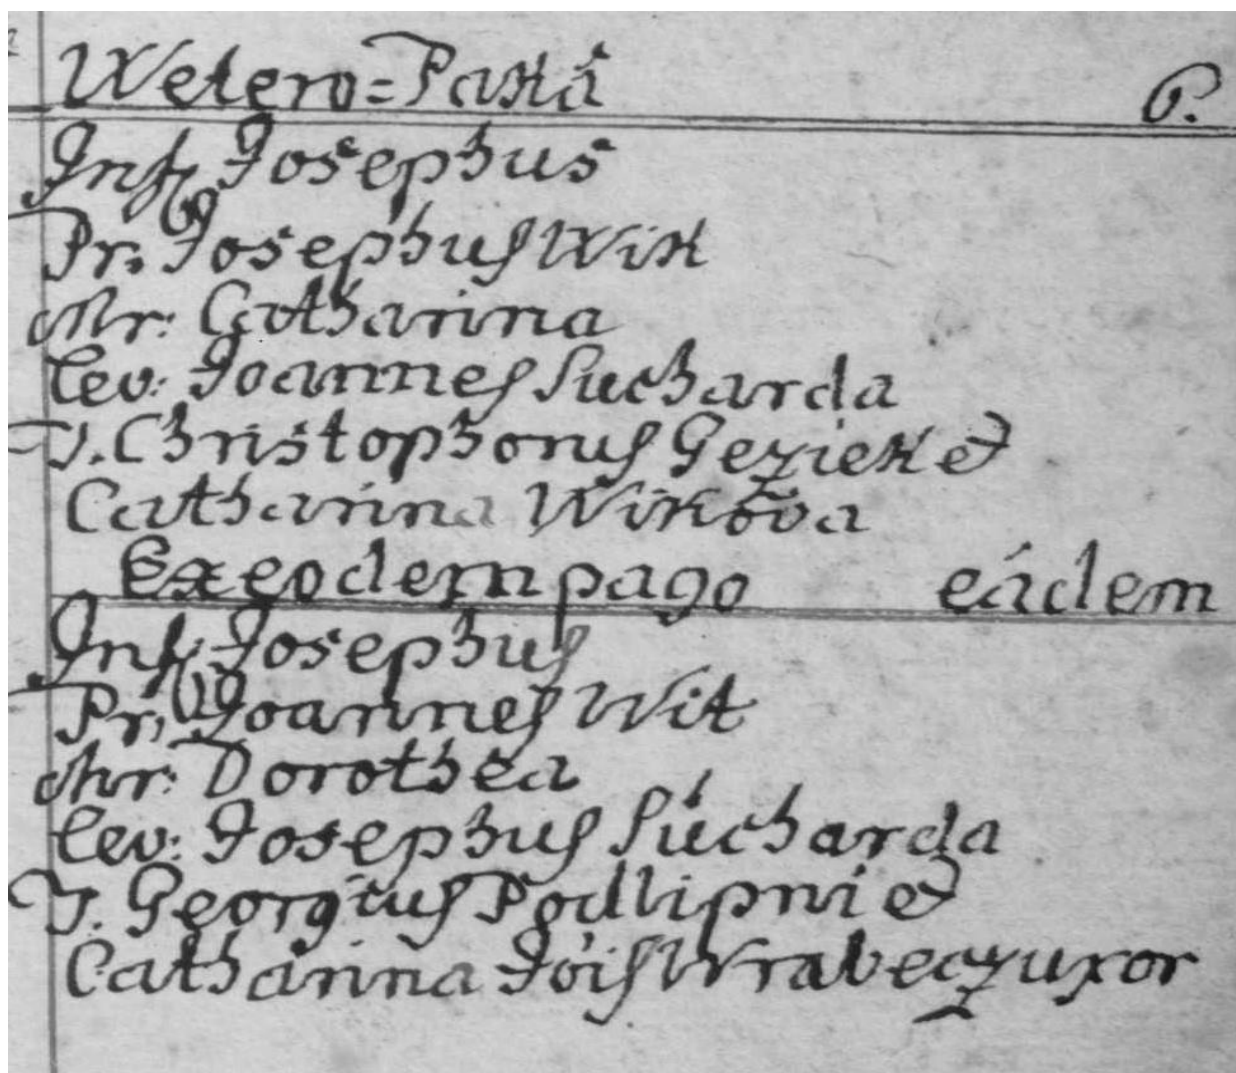 Wetero=Pakâ 6.
Inf: Josephus
Pr. Josephus Wik
Mr: Catharina
Lev: Joannes Sucharda
T. Christophorus Geziek et
Catharina Wikova
Ex eodem pago eâdem
Inf: Josephus
Pr. Joannes Wit
Mr: Dorothea
Lev: Josephus Sucharda
T. Georgius Podlipni et
Catharina Jois Wrabecz uxor